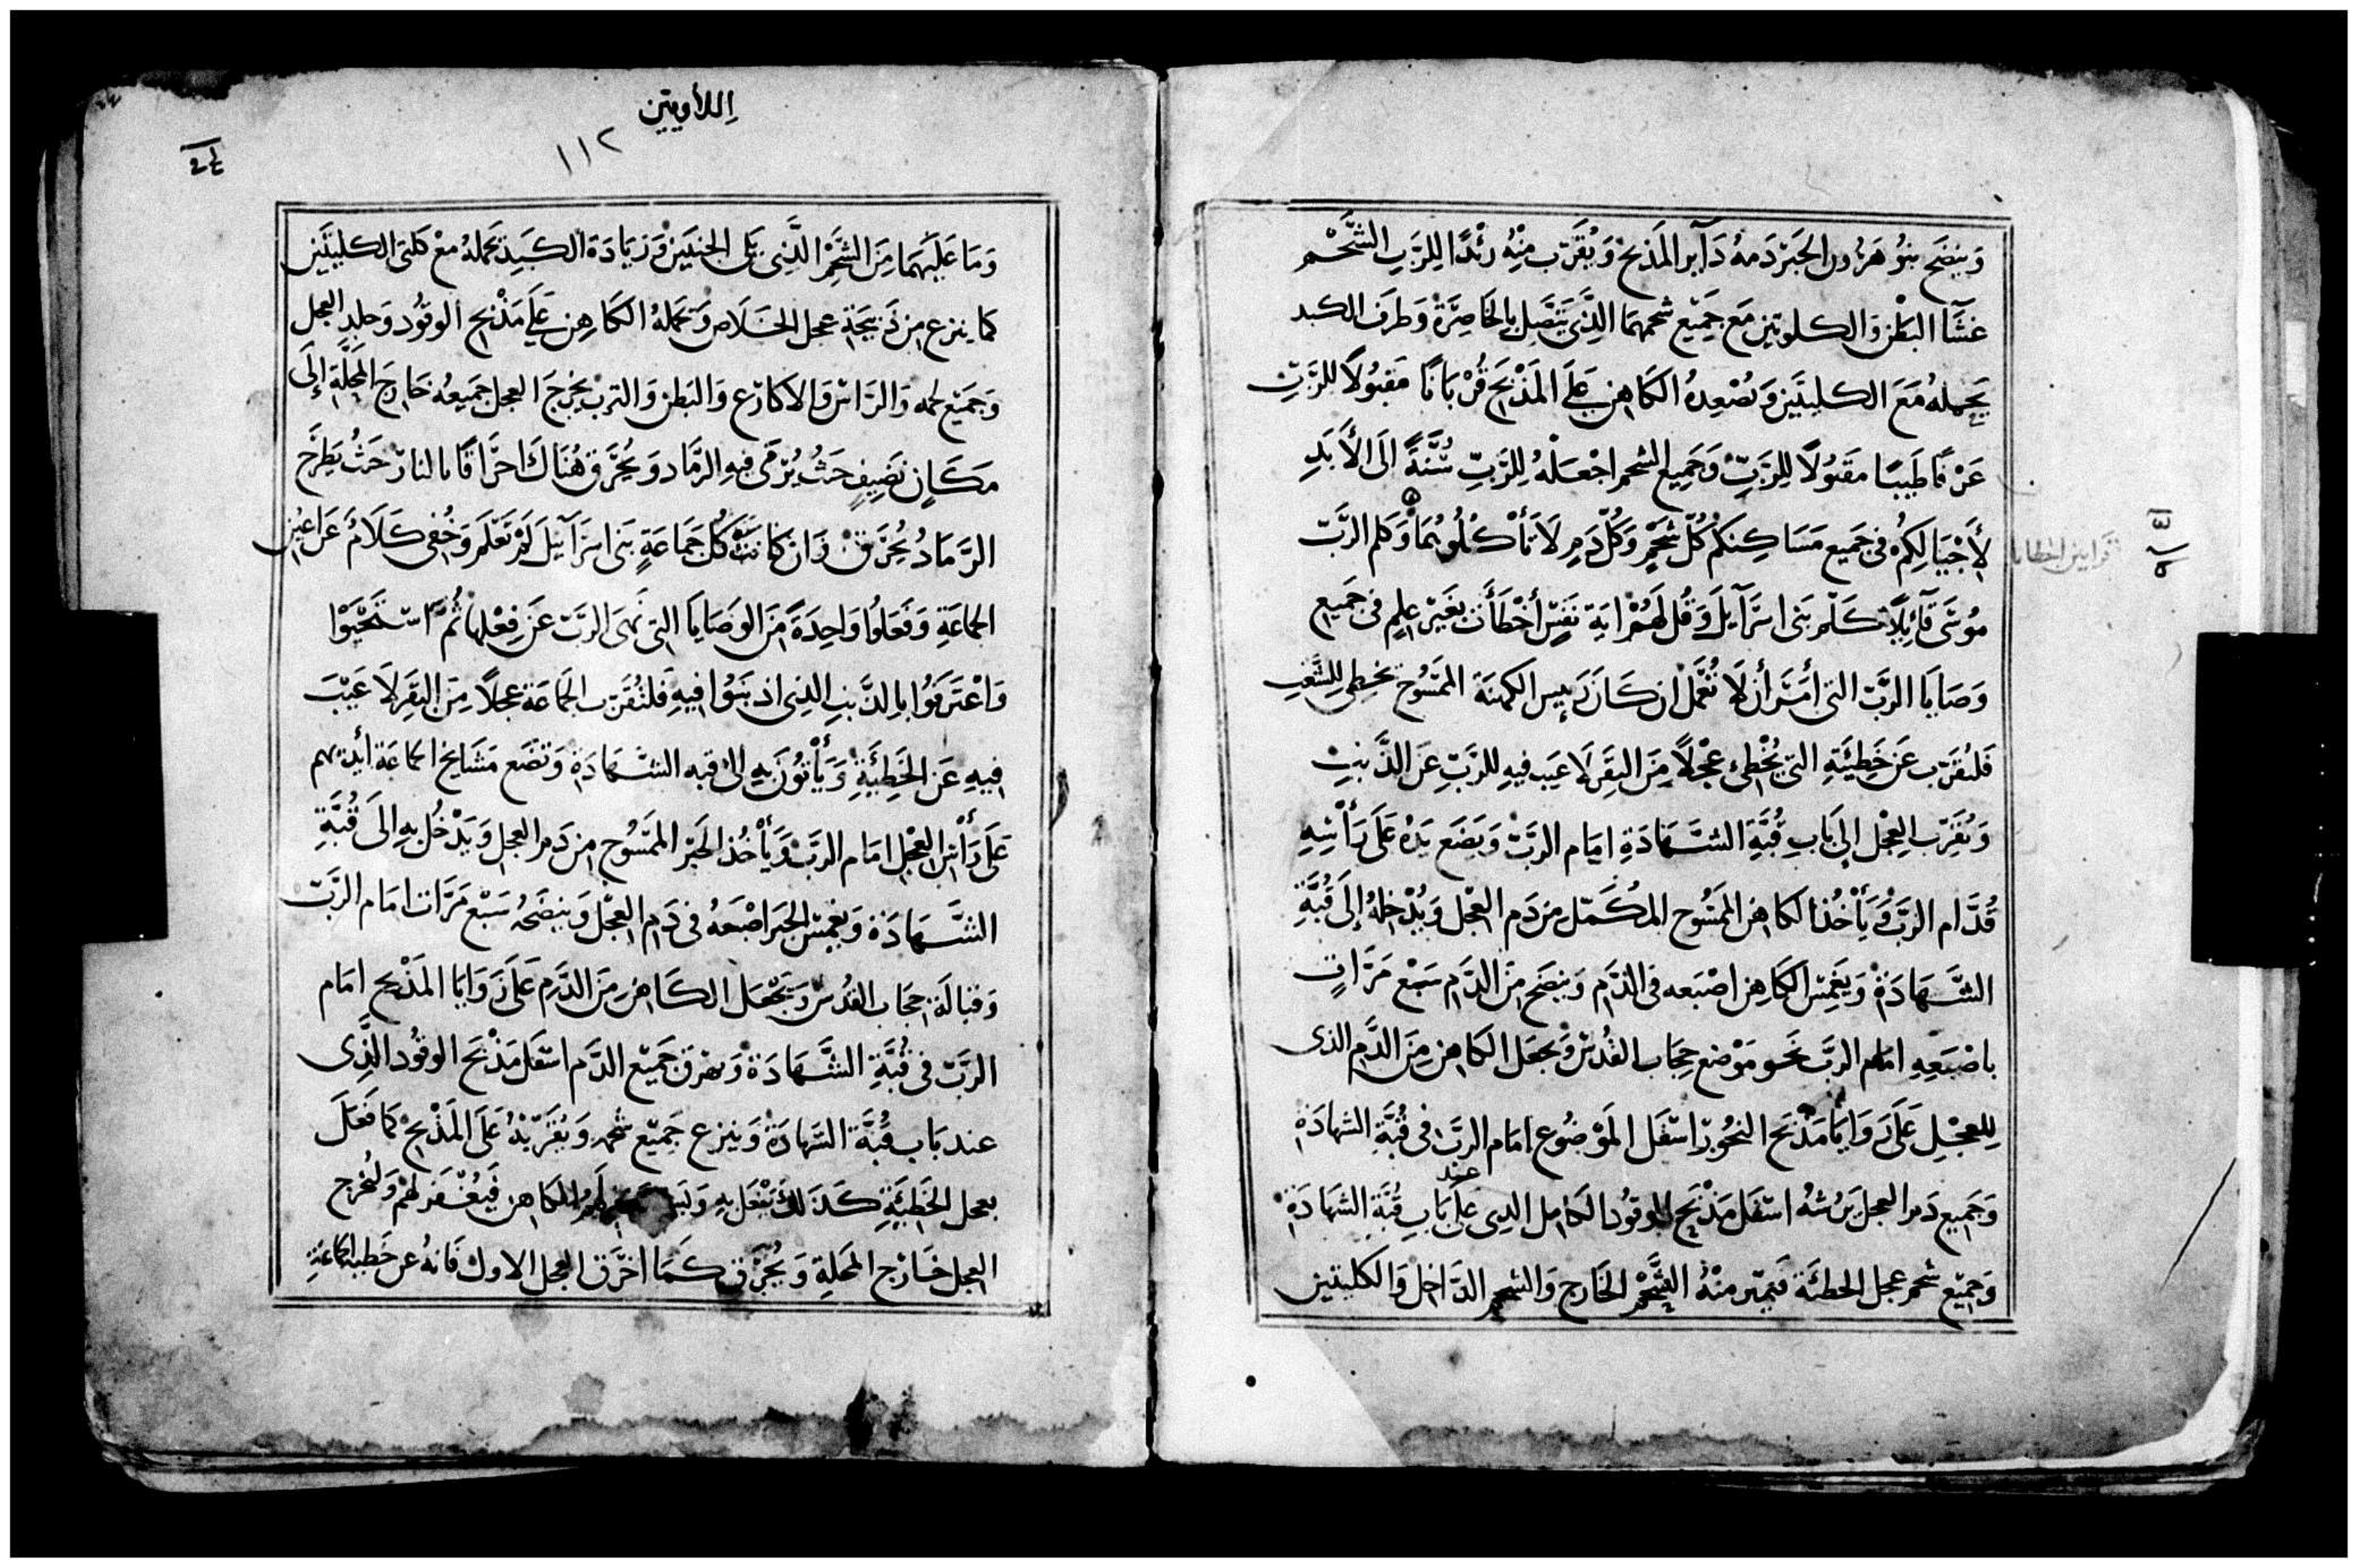 وَينضَح بنُو هَرُون الحَبَرْ دَمهُ دَآير المَذبحْ وَيُقَرّب مِنْهُ زِندًا لِلرَّبِ الشَّحْم
غشَآ البَطْن وَالكلوتين مَع جَمِيع شحمهمَا الَّذِي يَتَّصِل بالخَاصِرَةْ وَطرَف الكبد
يَحمله مَعَ الكليتَين وَتُصْعِدهُ الكَاهِن عَلَى المَذْبَح قُرْبَانًا مَقبُولاً للرَّبّ
عَرْفًا طَيّبًا مقبُولاً لِلرَّبّ وَجَمِيع الشحم اجْعَلْهُ لِلرَّبِّ سُنَّةً الَى الأَبَدِ
لأَجْيَالِكمُ فى جَميع مَسَاكِنَكمُ كُلّ شَحْمٍ وَكُلّ دَمٍ لاَ تَأْكُلُوهُمَا وَكلم الرَّبّ
مُوسَى قَآئِلاً كَلّم بَنى اسرَآيلَ وَقُل لَهُمْ ايَة نَفسٍ أَخْطَأَت بغَيْر علمٍ فى جَميع
وَصَايَا الرَّبّ التى أمَرَ أن لاَ تُعْمَل ان كَانَ رَييس الكهنَة الممَسُوح يخطى للِشَّعْبِ
فَليُقَرّب عَن خَطِيئَتِهِ التى يُخْطِىء عجْلاً مَنَ البقَر لاَ عَيب فيهِ للرَّبِّ عَن الذَّنبِ
وَيُقَرّب العِجْل إِلَى بَابِ قُبَّةِ الشَّهَادَةِ امَام الرَبّ وَيَضَع يَدهُ عَلَى رَأْسِهِ
قُدَّام الرَبّ وَيَأْخُذ الكَاهِن الممَسُوح المكَمّل من دَم العِجْل وَيُدْخلهُ إلَى قُبَّةِ
الشَّهَادَةْ وَيغَمِسّ الكَاهِن اصْبَعه فى الدَّم وَينضَح مِنَ الدَّم سَبْع مَرَّاتٍ
باصْبَعِهِ امَام الرَبّ نَحو مَوْضع حِجَاب القُدس وَيجعَل الكاهِن مِنَ الدَّم الذى
للِعجْلِ عَلَى زوَايَا مَذْبَح البَخُور اسْفَل المَوْضُوع امَام الربّ فى قُبَّةِ الشهادَة
وَجَمِيع دَم العجل يَرُشهُ اسْفَل مَذْبَح الوقُود الكَامِل الذى عَلَى عند بَابِ قُبَّةِ الشهَادَةْ
وَجَمِيْع شحم عجل الخطئَة فيمّيز منْهُ الشَّحْم الخَارج وَالشحم الدَّاخِل وَالكليتين
قرابين الخطايا
اللأويين
١١٢
وَمَا عَلَيْهمَا مِنَ الشَحْم الَّذِى يَلى الجنبَين وَزيَادَة الكَبَد يحَملهُ معْ كلتى الكليتَين
كمَا ينزع مِن ذَبيحَة عجل الخَلاَص وَيَحملهُ الكَاهِن عَلَى مَذْبَح الوقُود وَجلدَ العجل
وَجَمِيْع لحمه وَالرَاسْ وَالاكارِع وَالبَطن وَالترب يخْرجَ العجل جَميعُه خَارِجَ المَحلّةِ إِلَى
مَكَانٍ نَضِيفٍ حَيثُ يُرْمَى فِيهِ الرَّمَاد وَيُحَرّق هُنَاكَ احرَاقًا بالنارْ حَيثُ يَطْرَح
الرَّمَادُ يُحْرَق وَان كَانَتْ كُل جَمَاعَةِ بَنى اسرَآئِيلَ لَمْ تَعْلَم وَخُفى كَلاَمُ عَن اعيُن
الجمَاعَةِ وَفَعَلُوا وَاحِدَةً مَنَ الوَصَايَا التى نَهَى الرَبّ عَن فِعْلِهَا ثُمَّ اسْتَحْيَوْا
وَاعْتَرَفُوا بالِذّنبِ الذِى اذنبَوُا فيِهِ فَلتُقَرّب الجَمَاعَة عِجلاً مِنَ البقَر لاَ عَيْبَ
فيِهِ عَن الخَطِيَّةِ وَيَأْتُونَ بِهِ الى قبه الشّهَادَةِ وَتضَع مَشَايخ الجماعَة أيديهم
عَلَى رَأْس العِجْل امَام الرَبّ وَيَأْخُذ الحَبْر الممَسُوح من دَم العجل وَيَدْخُل بهِ الَى قُبَّةِ
الشَّهَادَة وَيغمِسْ الحَبر اصْبَعهُ فى دَم العِجْل وَينضَحُه سَبْع مَرَّات امَام الرَّبّ
وَقبَالَة حِجَاب القدُس وَيَجْعَل الكَاهِن مِنَ الدَّم عَلَى زَوَايَا المَذْبح امَام
الرَبّ فى قُبَّةِ الشَّهَادَةْ وَيهْرق جَمِيْع الدَّم اسْفَل مَذْبَح الوقُود الَّذِى
عند بَاب قُبَّة الشَهَادَةْ وَينزع جَميْع شحمهِ وَيُقَرّبهُ عَلَى المَذْبحْ كمَا فَعَلَ
بعجل الخَطِيئَةِ كَذَلكَ يَفْعَل بهِ الكاهِن فَيُغْفَر لهَمْ وَيُخْرج
العِجل خَارْج المَحلّةِ وَيُحْرَق كَمَا احرَق العِجل الاول فَانهُ عن خَطيه الجمَاعَةِ